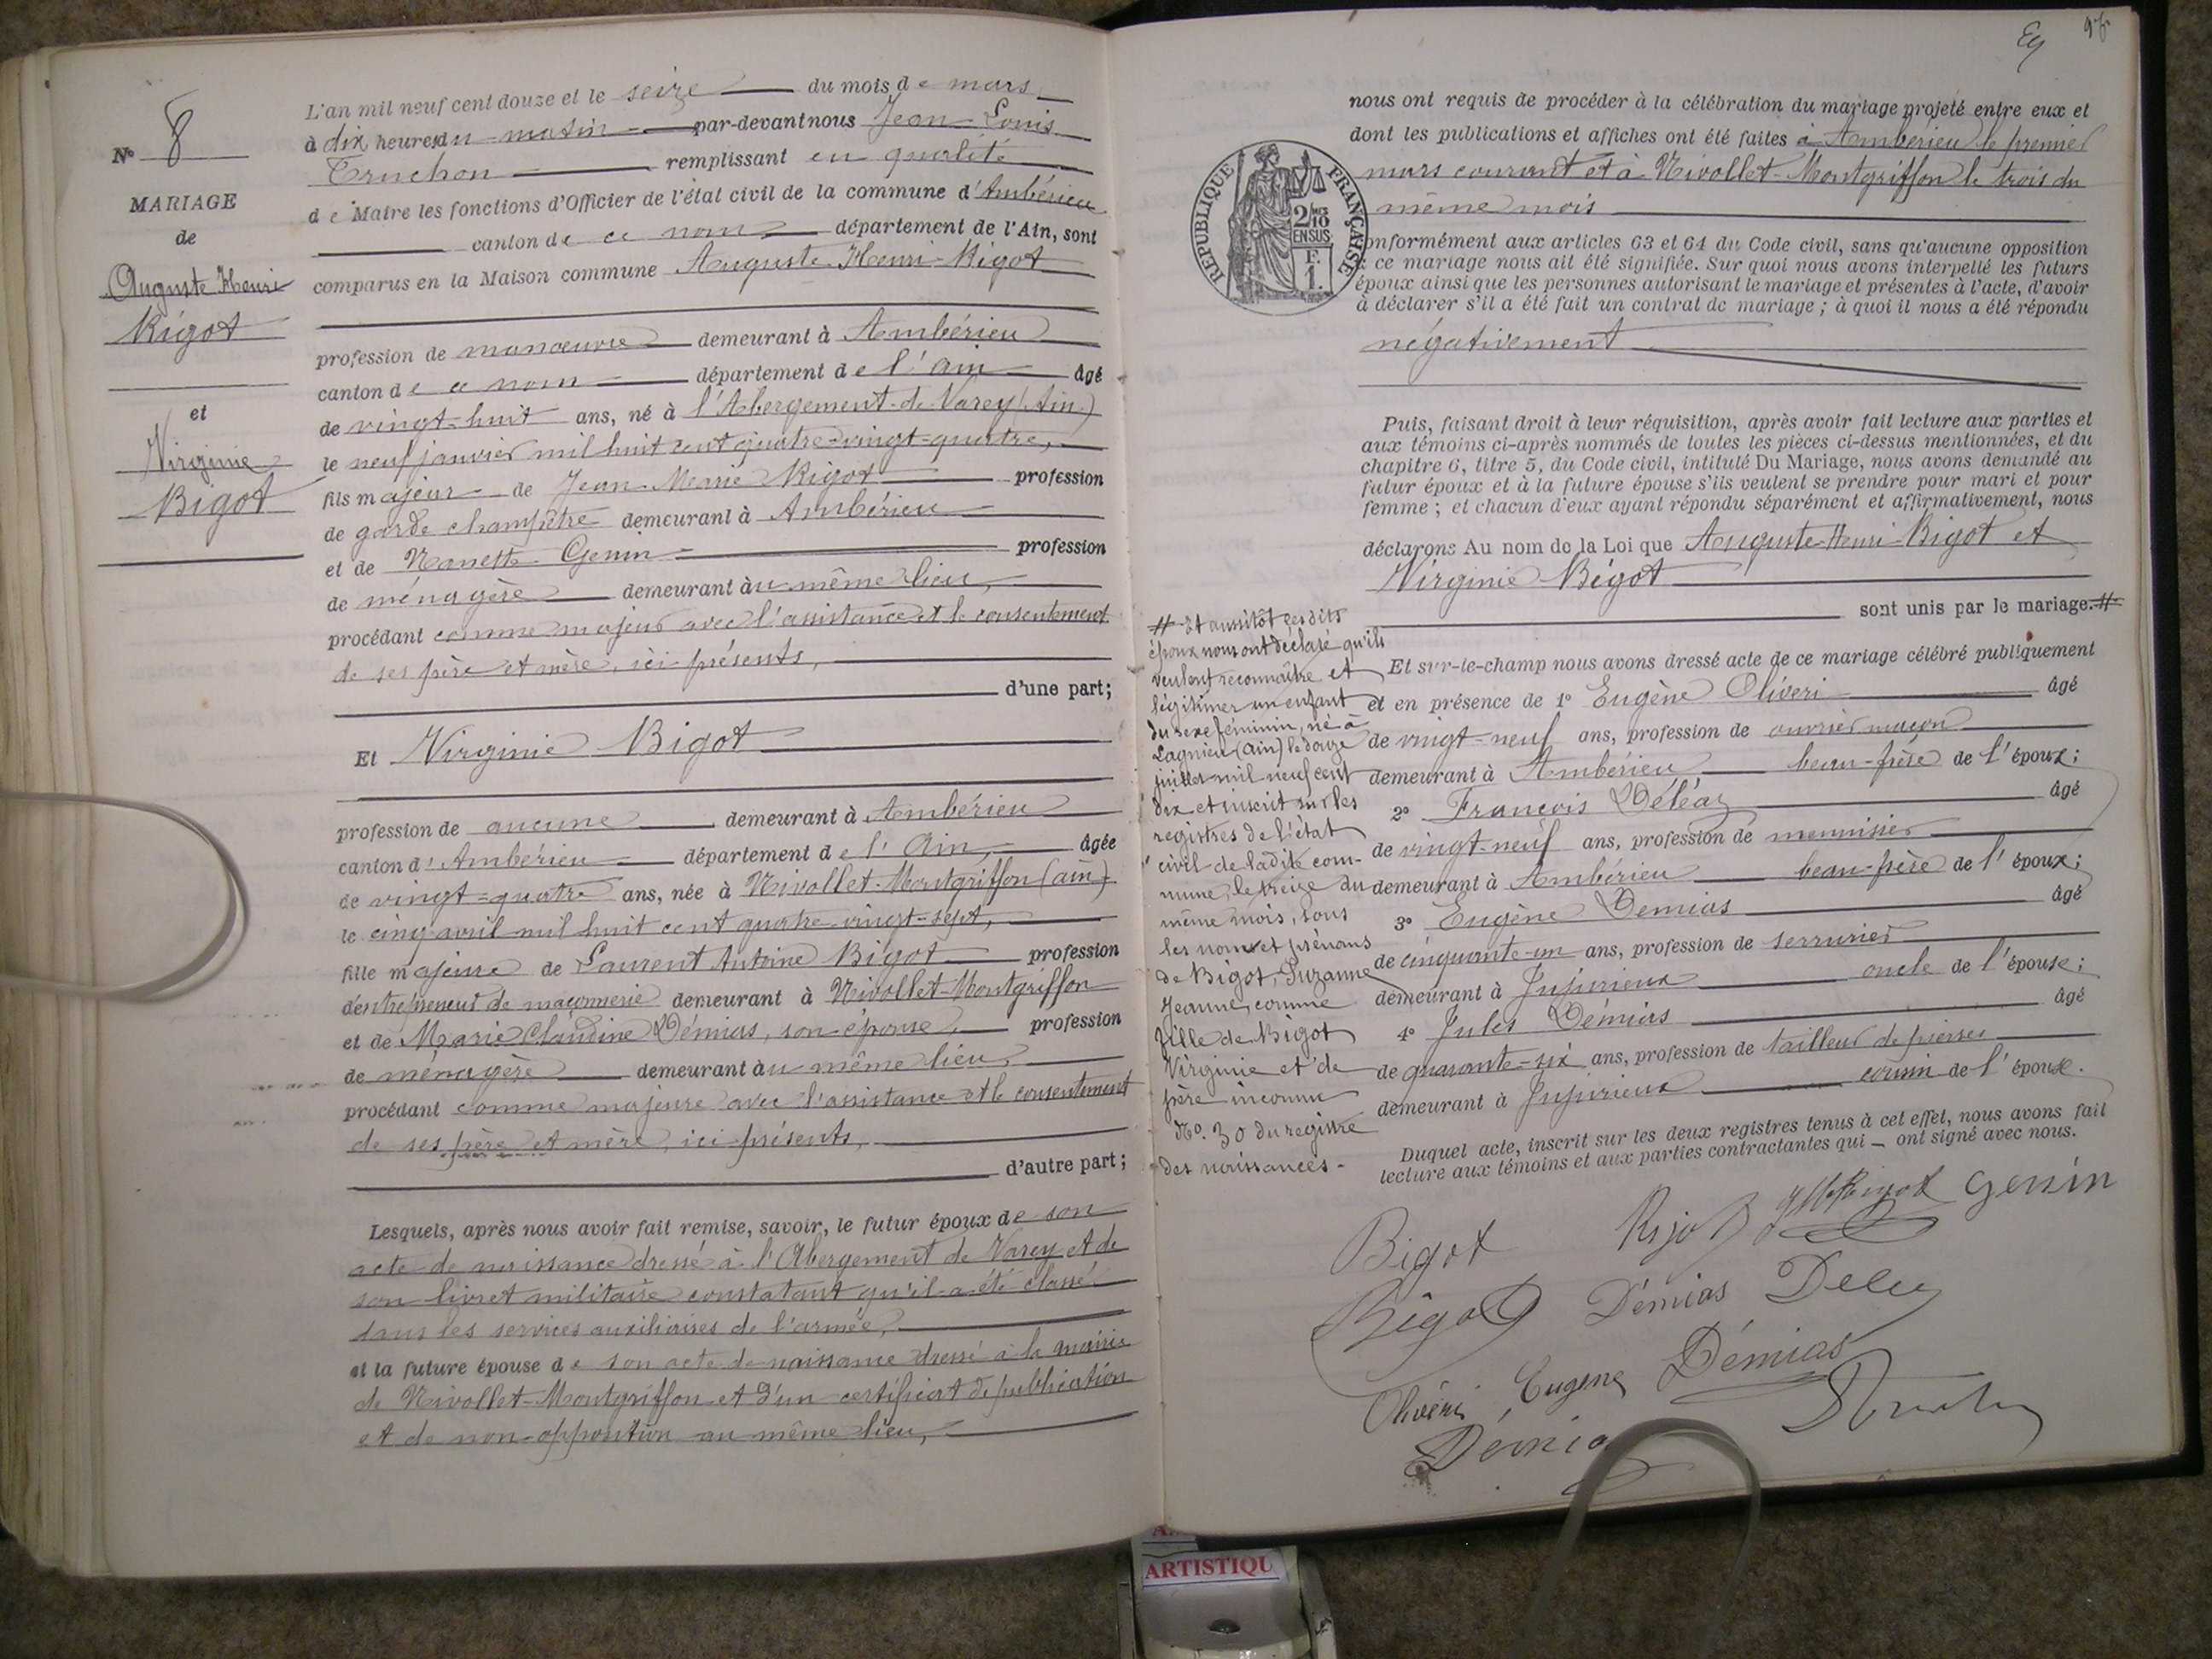 N° 8
MARIAGE
de
Auguste Henri
Bigot
et
Virginie
Bigot
L'an mil neuf cent douze et le seize du mois de mars
à dix heures du matin par-devant nous Jean-Louis
Truchon remplissant en qualité
de Maire les fonctions d'Officier de l'état civil de la commune d'Ambérieu
canton de ce nom département de l'Ain, sont
comparus en la Maison commune Auguste-Henri-Bigot
profession de manœuvre demeurant à Ambérieu
canton de ce nom département de l'Ain âgé
de vingt-huit ans, né à l'Abergement-de-Varey (Ain)
le neuf janvier mil huit cent quatre-vingt-quatre,
fils majeur de Jean-Marie Bigot profession
de garde champêtre demeurant à Ambérieu
et de Nanette Genin profession
de ménagère demeurant au même lieu,
procédant comme majeur avec l'assistance et le consentement
de ses père et mère, ici présents,
d'une part;
Et Virginie Bigot
profession de aucune demeurant à Ambérieu
canton d'Ambérieu département de l'Ain, âgée
de vingt-quatre ans, née à Nivollet-Montgriffon (ain)
le cinq avril mil huit cent quatre-vingt-sept,
fille majeure de Laurent Antoine Bigot profession
d'entrepreneur de maçonnerie demeurant à Nivollet-Montgriffon
et de Marie Claudine Démias, son épouse, profession
de ménagère demeurant au même lieu,
procédant comme majeure avec l'assistance et le consentement
de ses père et mère, ici présents,
d'autre part;
Lesquels, après nous avoir fait remise, savoir, le futur époux de son
acte de naissance dressé à l'Abergement de Varey et de
son livret militaire constatant qu'il a été classé
dans les services auxiliaires de l'armée,
et la future épouse de son acte de naissance dressé à la mairie
de Nivollet-Montgriffon et d'un certificat de publication
et de non-opposition au même lieu,
nous ont requis de procéder à la célébration du mariage projeté entre eux et
dont les publications et affiches ont été faites à Ambérieu le premier
mars courant et à Nivollet-Montgriffon le trois du
même mois
RÉPUBLIQUE FRANÇAISE
2/10
EN SUS
F.
1.
conformément aux articles 63 et 64 du Code civil, sans qu'aucune opposition
à ce mariage nous ait été signifiée. Sur quoi nous avons interpellé les futurs
époux ainsi que les personnes autorisant le mariage et présentes à l'acte, d'avoir
à déclarer s'il a été fait un contrat de mariage; à quoi il nous a été répondu
négativement
Puis, faisant droit à leur réquisition, après avoir fait lecture aux parties et
aux témoins ci-après nommés de toutes les pièces ci-dessus mentionnées, et du
chapitre 6, titre 5, du Code civil, intitulé Du Mariage, nous avons demandé au
futur époux et à la future épouse s'ils veulent se prendre pour mari et pour
femme; et chacun d'eux ayant répondu séparément et affirmativement, nous
déclarons Au nom de la Loi que Auguste-Henri-Bigot et
Virginie Bigot
sont unis par le mariage.#
# Et aussitôt cesdits
époux nous ont déclaré qu'ils
veulent reconnaître et
légitimer un enfant
du sexe féminin, né à
Lagnieu (ain) le douze
juillet mil neuf cent
dix et inscrit sur les
registres de l'état
civil de ladite com-
mune, le treize du
même mois, sous
les nom et prénoms
de Bigot, Suzanne
Jeanne, comme
fille de Bigot
Virginie et de
père inconnu
N°. 30 du registre
des naissances-
Et sur-le-champ nous avons dressé acte de ce mariage célébré publiquement
et en présence de 1° Eugène Oliveri âgé
de vingt-neuf ans, profession de ouvrier maçon
demeurant à Ambérieu beau-frère de l'époux;
2° François Déléaz âgé
de vingt-neuf ans, profession de menuisier
demeurant à Ambérieu beau-frère de l'époux;
3° Eugène Demias âgé
de cinquante-un ans, profession de serrurier
demeurant à Jujurieux oncle de l'épouse;
4° Jules Démias âgé
de quarante-six ans, profession de tailleur de pierres
demeurant à Jujurieux cousin de l'épouse.
Duquel acte, inscrit sur les deux registres tenus à cet effet, nous avons fait
lecture aux témoins et aux parties contractantes qui ont signé avec nous.
Bigot Bigot Bigot Genin
Bigot Démias
Olivéri Eugène Démias
Démias
ARTISTIQU